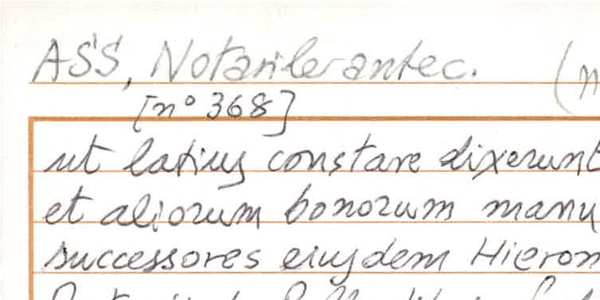 ASS, Notarile antec. (n
[n° 368]
ut latius constare dixerunt
et aliorum bonorum manu
successores eiusdem Hieron